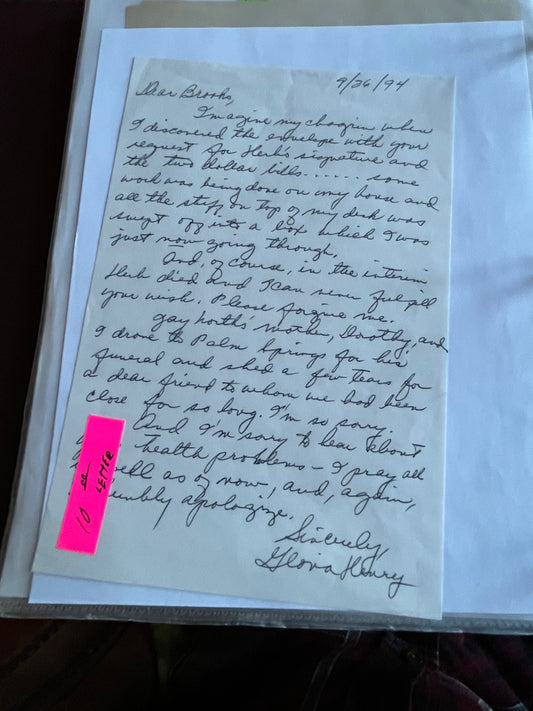 9/26/94
Dear Brooks,
Imagine my chagrin when
I discovered the envelope with your
request for Herb's signature and
the two dollar bills...... some
work was being done on my house and
all the stuff on top of my desk was
swept off into a box which I was
just now going through.
And, of course, in the interim
Herb died and I can never fulfill
your wish. Please forgive me.
Gay North's mother, Dorothy, and
I drove to Palm Springs for his
funeral and shed a few tears for
a dear friend to whom we had been
close for so long. I'm so sorry.
And I'm sorry to hear about
health problems - I pray all
well as of now, and, again,
humbly apologize.
Sincerely,
Gloria Henry
10 LETTER